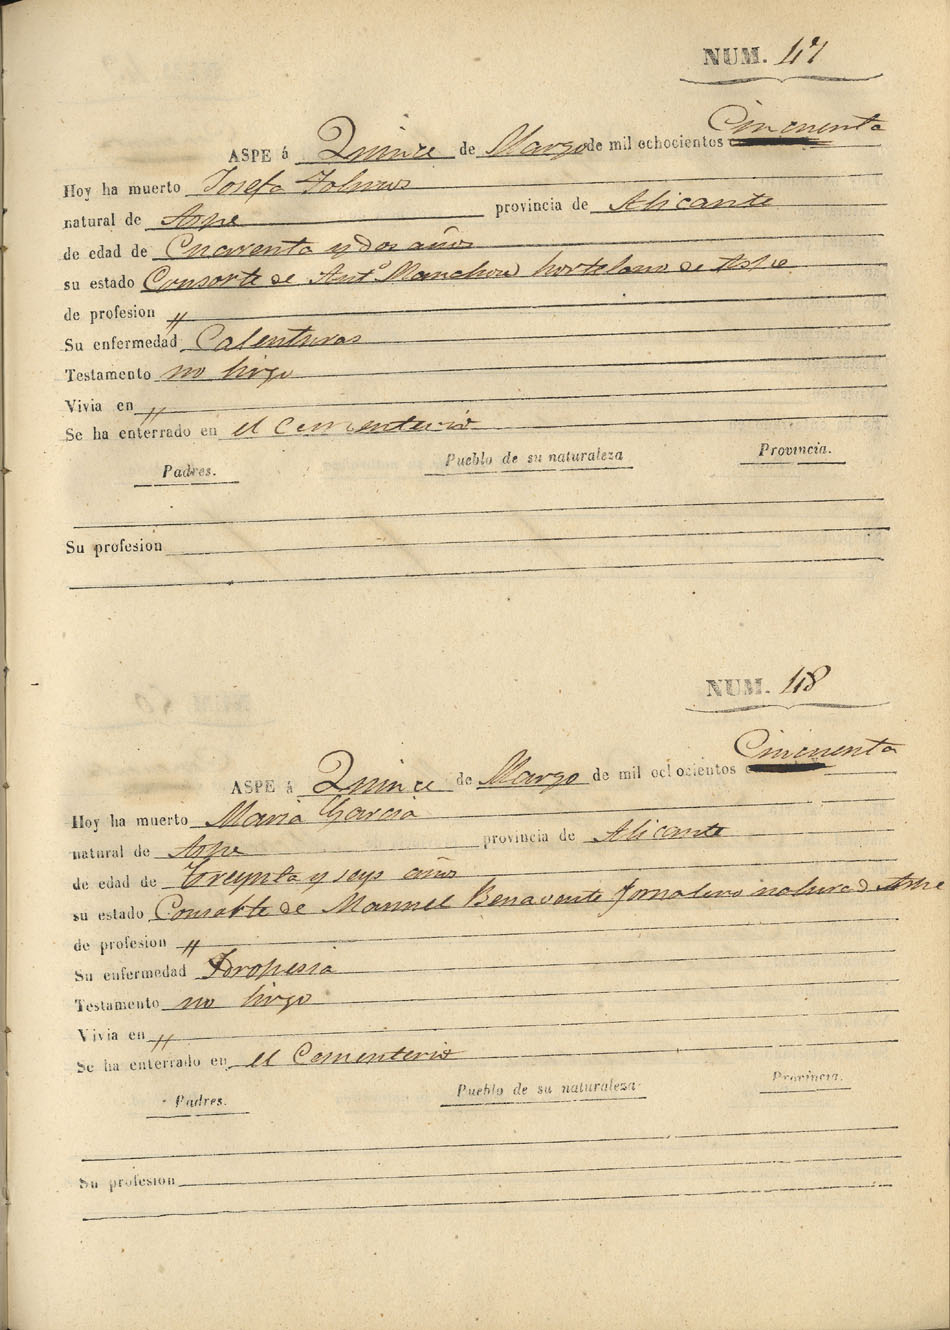 NUM. 47
ASPE á Quince de Marzo de mil ochocientos Cincuenta
Hoy ha muerto Josefa
natural de Aspe provincia de Alicante
de edad de Cuarenta y dos años
su estado Consorte de Antº Manchon hortelano de Aspe
de profesion "
Su enfermedad Calenturas
Testamento no hizo
Vivia en "
Se ha enterrado en el Cementerio
Padres. Pueblo de su naturaleza Provincia.
Su profesion
NUM. 48
ASPE á Quince de Marzo de mil ochocientos Cincuenta
Hoy ha muerto Maria Garcia
natural de Aspe provincia de Alicante
de edad de Treynta y seys años
su estado Consorte de Manuel Benavente Jornalero natural d Aspe
de profesion "
Su enfermedad Idropesia
Testamento no hizo
Vivia en "
Se ha enterrado en el Cementerio
Padres. Pueblo de su naturaleza Provincia.
Su profesion